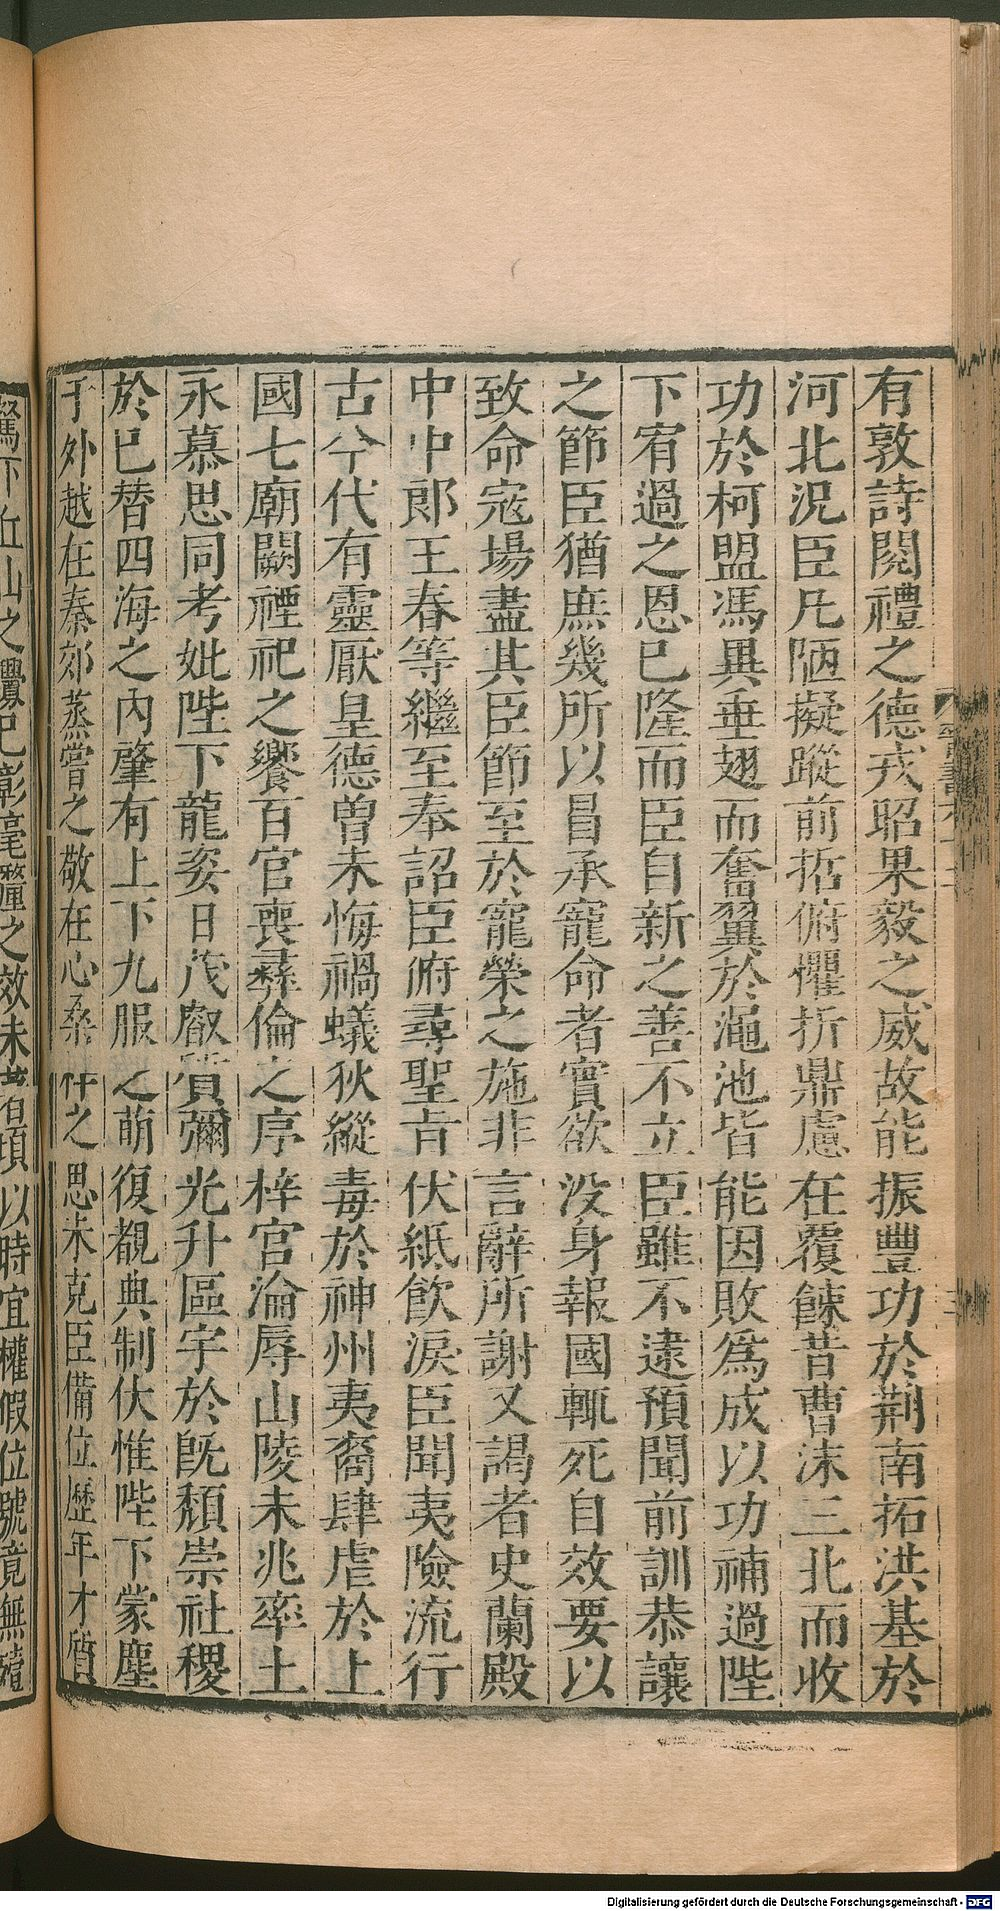 有敦詩閱禮之德戎昭果毅之威故能振豐功於荆南拓洪基於
河北況臣凡陋擬蹤前哲俯懼折鼎慮在覆餗昔曹沬三北而收
功於柯盟馮異垂翅而奮翼於澠池皆能因敗爲成以功補過陛
下宥過之恩已隆而臣自新之善不立臣雖不逮預聞前訓恭讓
之節臣猶庶幾所以冒承寵命者實欲没身報國輒死自效要以
致命寇場盡其臣節至於寵榮之施非言辭所謝又謁者史蘭殿
中中郎王春等繼至奉詔臣俯尋聖旨伏紙飮淚臣聞夷險流行
古今代有靈厭皇德曾未悔禍蟻狄縱毒於神州夷裔肆虐於上
國七廟闕禋祀之饗百官喪彝倫之序梓宮淪辱山陵未兆率土
永慕思同考妣陛下龍姿日茂叡質彌光升區宇於旣頹崇社稷
於已替四海之內肇有上下九服之萌復覩典制伏惟陛下蒙塵
于外越在秦郊蒸嘗之敬在心桑梓之思未克臣備位歷年才質
駑下丘山之釁已彰毫釐之效未著頃以時宜權假位號竟無殪
Digitalisierung gefördert durch die Deutsche Forschungsgemeinschaft - DFG